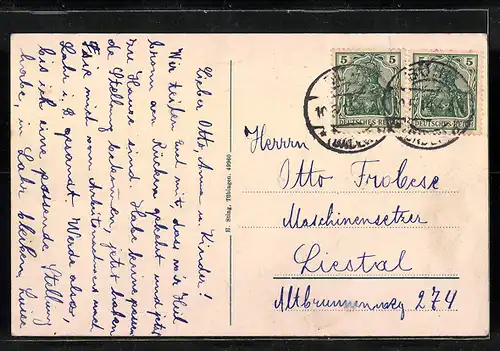 Lieber Otto, Anna u. Kinder!
Wir teilen euch mit dass wir
von Rücken gekehrt und jetzt
zu Hause sind. Habe keine passen
de Stellung bekommen, jetzt haben
Sie mich vom Arbeitsnachweis nach
Lahr i. B. gesandt. Werde also,
bis ich eine passende Stellung
habe, in Lahr bleiben,
H. Sting, Tübingen. 49960
5 5
DEUTSCHES REICH
Herrn
Otto Frobese
Maschinensetzer
Liestal
Altbrunnenweg 274